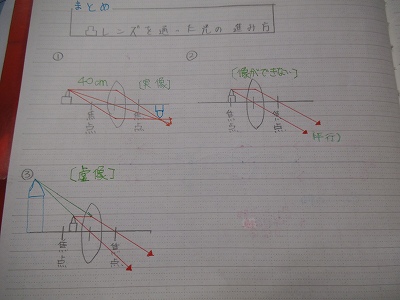 まとめ
凸レンズを通った光の進み方
①
40cm
[実像]
焦点
焦点
②
[像ができない]
焦点
焦点
(平行)
③
[虚像]
焦点
焦点